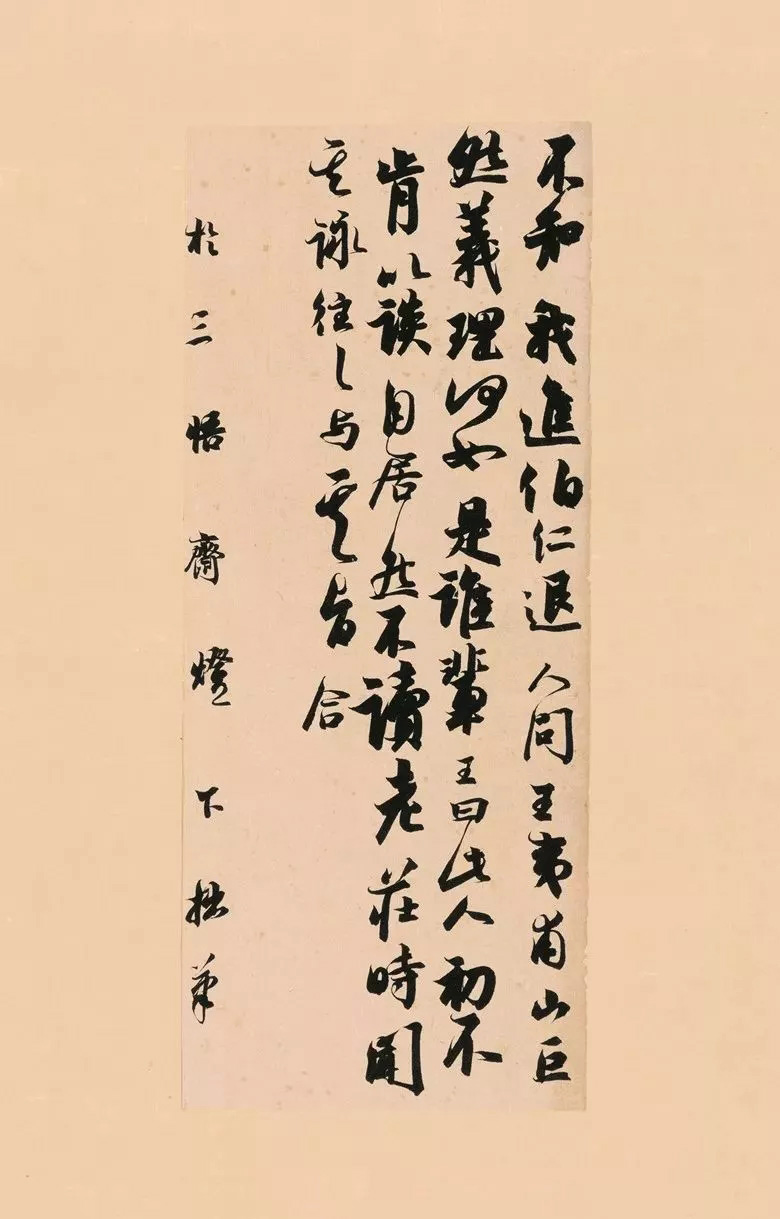 不知我進伯仁退人問王夷甫山巨
然義理何如是誰輩王曰此人初不
肯以談自居然不讀老莊時聞
其詠往〻与其旨合
於三悟齋燈下拙筆